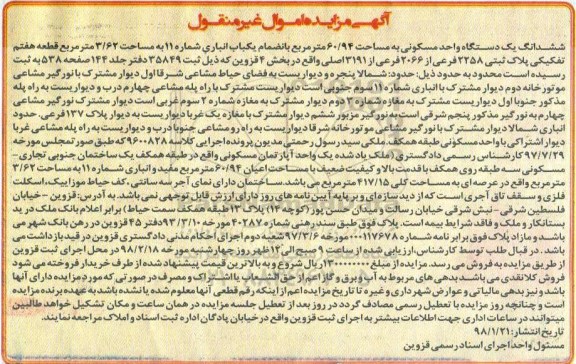 آگهی مزایده اموال غیر منقول
ششدانگ یک دستگاه واحد مسکونی به مساحت ۶۰/۹۴ متر مربع بانضمام یکباب انباری شماره ۱۱ به مساحت ۳/۶۲ متر مربع قطعه هفتم
تفکیکی پلاک ثبتی ۲۲۵۸ فرعی از ۲۰۶۶ فرعی از ۳۱۹۱ اصلی واقع در بخش ۴ قزوین که ذیل ثبت ۳۵۸۴۹ دفتر جلد ۱۴۴ صفحه ۵۳۸ به ثبت
رسیده است محدود به حدود ذیل: حدود: شمالا پنجره و دیواریست به فضای حیاط مشاعی شرقا اول دیوار مشترک با نورگیر مشاعی
شرقخانه دوم دیوار مشترک با انباری شماره ۱۱ سوم جنوبی است دیواریست مشترک با راه پله مشاعی چهارم درب و دیواریست به راه پله
مذکور جنوبا اول دیواریست مشترک به مغازه شماره یک دوم دیوار مشترک به مغازه شماره ۲ سوم غربی است دیوار مشترک نورگیر مشاعی
چهارم به نورگیر مذکور پنجم شرقی است به نورگیر مزبور ششم دیوار مشترک با مغازه یک غربا دیواریست به دیوار پلاک ۱۳۷ فرعی. حدود
انباری شمالا دیوار مشترک با نورگیر مشاعی موتورخانه شرقا دیواریست به راه رو مشاعی جنوبا درب و دیواریست به راه پله مشاعی غربا
دیوار اشتراکی با واحد مسکونی طبقه همکف. ملکی سید رسول رحمتی مدیون پرونده اجرایی کلاسه ۹۶۰۰۸۲۸ که طبق صورتمجلس مورخه
۹۷/۷/۲۹ کارشناس رسمی دادگستری (ملک یاد شده یک واحد آپارتمان مسکونی واقع در طبقه همکف یک ساختمان جنوبی تجاری-
مسکونی سه طبقه روی همکف با قدمت بالا و کیفیت ضعیف با مساحت اعیان ۶۰/۹۴ متر مربع مفید و انباری شماره ۱۱ به مساحت ۳/۶۲
متر مربع واقع در عرصه ای به مساحت کلی ۴۱۷/۱۵ متر مربع می باشد. ساختمان دارای نمای آجر سه سانتی، کف حیاط موزاییک، اسکلت
فلزی و سقف تاق آجری است که از دید سازه ای و بر پایه آیین نامه های روز دارای ارزش قابل توجهی نمی باشد. به آدرس: قزوین - خیابان
فلسطین شرقی - نبش شرقی خیابان رسالت - میدان حسن پور (کوچه ۱۴) پلاک ۱۳ طبقه همکف سمت حیاط) برابر اعلام بانک ملک در ید
بستانکار و ملک و فاقد شرایط بیمه است. پلاک فوق طبق سند رهنی شماره ۴۰۲۸۰ مورخه ۹۲/۳/۱۰ دفتر ۴۵ قزوین در رهن بانک شهر می
باشد و مازاد پلاک فوق برابر نامه شماره ۱۱۷۶۷۸-۱۰۰ مورخه ۹۷/۳/۶ شعبه دوم اجرای احکام مدنی دادگستری قزوین در قید بازداشت می
باشد. در قبال طلب توسط کارشناس، ارزیابی شده از ساعت ۹ صبح الی ۱۲ ظهر روز چهارشنبه مورخه ۹۸/۲/۱۸ در محل اجرای ثبت قزوین
از طریق مزایده به فروش می رسد. مزایده از مبلغ ریال شروع و به بالاترین قیمت پیشنهاد شده از طرف خریدار فروخته می شود
فروش کلا نقدی می باشد. بدهی های مربوطه به آب و برق و گاز اعم از حق انشعاب یا اشتراک و مصرف در صورتی که مورد مزایده دارای آنها
باشد و نیز بدهی مالیاتی و عوارض شهرداری و غیره تا تاریخ مزایده اعم از اینکه رقم قطعی آنها معلوم شده یا نشده باشد به عهده برنده مزایده
است و چنانچه روز مزایده با تعطیل رسمی مصادف گردد در روز بعد از تعطیل جلسه مزایده در همان ساعت و مکان تشکیل خواهد طالبین
میتوانند در ساعات اداری جهت اطلاعات بیشتر به اجرای ثبت قزوین واقع در خیابان پادگان اداره ثبت اسناد و املاک مراجعه نمایند.
تاریخ انتشار: ۹۸/۱/۲۱
مسئول واحد اجرای اسناد رسمی قزوین